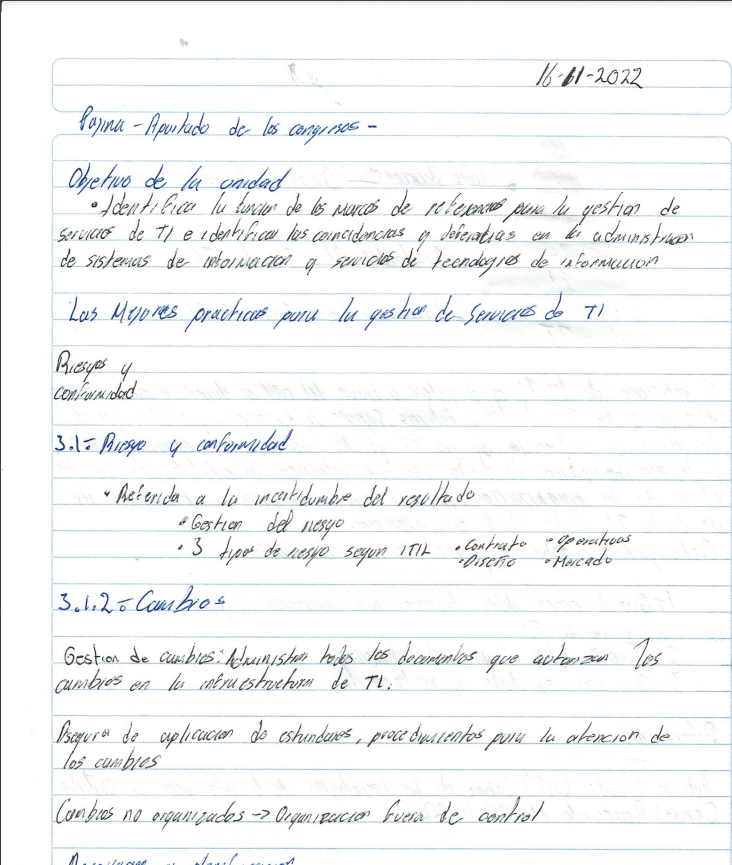 16-11-2022
Pagina - Apartado de los congresos -
Objetivo de la unidad
• Identificar la funcion de los marcos de referencias para la gestion de
servicios de TI e identificar las coincidencias y diferencias en la administracion
de sistemas de informacion y servicios de tecnologias de informacion
Las Mejores practicas para la gestion de Servicios de TI
Riesgos y
conformidad
3.1.- Riesgo y conformidad
• Referida a la incertidumbre del resultado
• Gestion del riesgo
• 3 tipos de riesgo segun ITIL • Contrato • Operativos
• Diseño • Mercado
3.1.2.- Cambios
Gestion de cambios: Administrar todos los documentos que autorizan los
cambios en la infraestructura de TI.
Asegurar de aplicacion de estandares, procedimientos para la atencion de
los cambios
Cambios no organizados -> Organizacion fuera de control